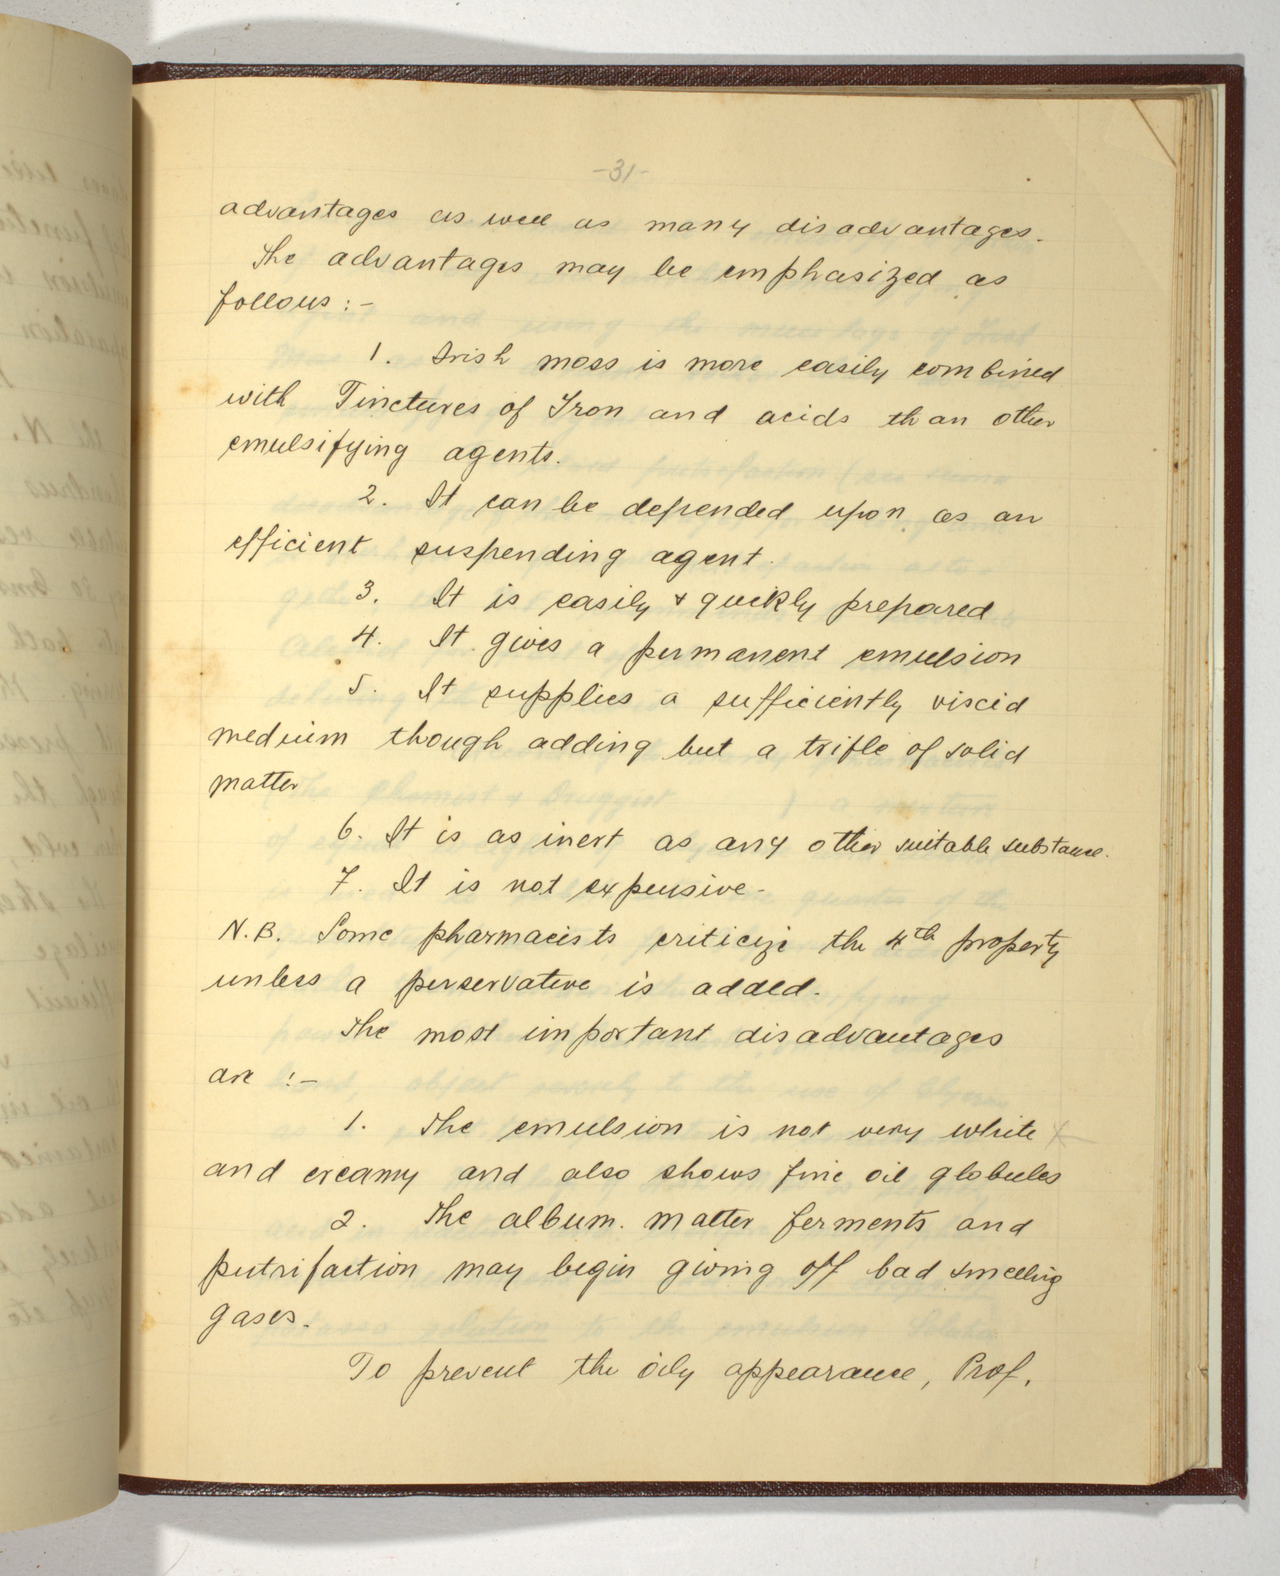 -31-
advantages as well as many disadvantages.
The advantages may be emphasized as
follows :-
1. Irish moss is more easily combined
with Tinctures of Iron and acids than other
emulsifying agents.
2. It can be depended upon as an
efficient suspending agent.
3. It is easily & quickly prepared
4. It gives a permanent emulsion
5. It supplies a sufficiently viscid
medium though adding but a trifle of solid
matter
6. It is as inert as any other suitable substance.
7. It is not expensive-
N.B. Some pharmacists criticize the 4th property
unless a perservative is added.
The most important disadvantages
are :-
1. The emulsion is not very white
and creamy and also shows fine oil globules
2. The album. matter ferments and
putrifaction may begin giving off bad smelling
gases.
To prevent the oily appearance, Prof.